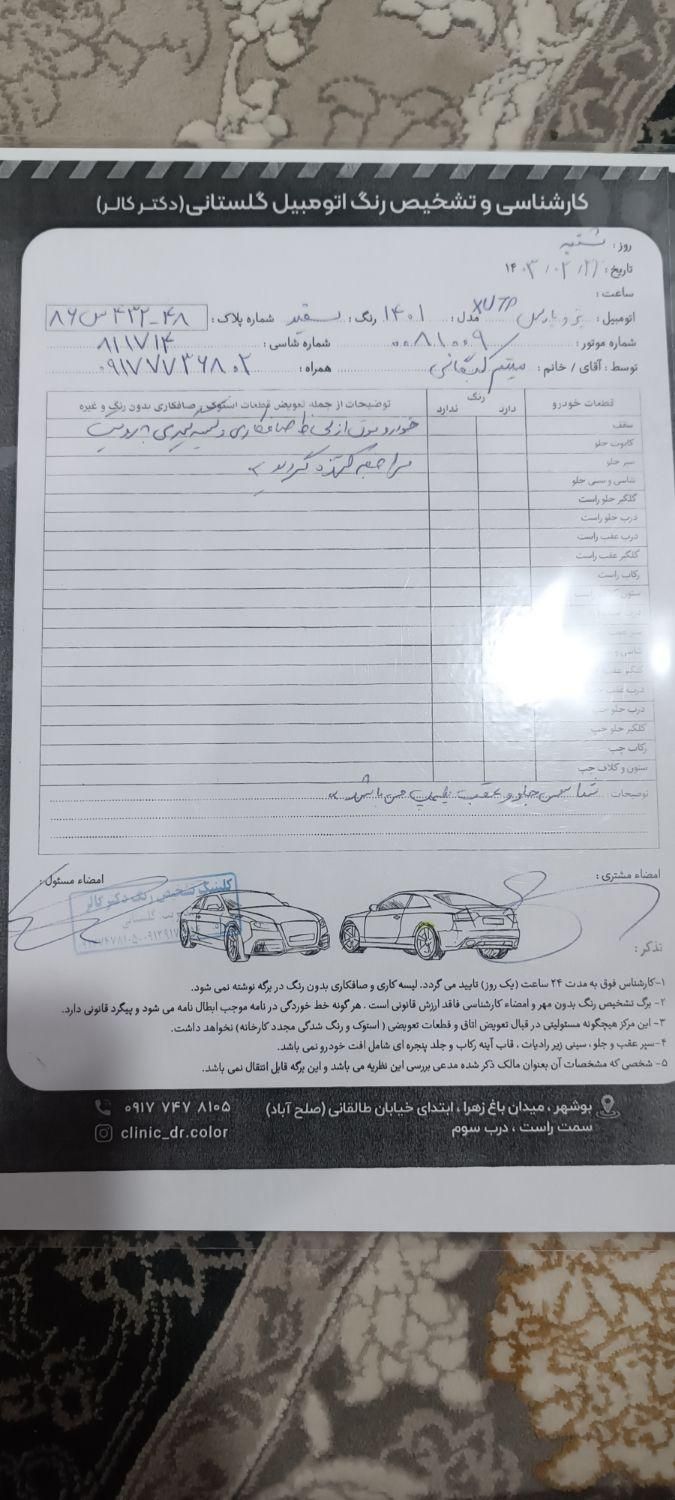 کارشناسی و تشخیص رنگ اتومبیل گلستانی (دکتر کالر)
روز : شنبه
تاریخ : ۱۴۰۳/۰۲/
ساعت :
اتومبیل : پژو پارس XUTP مدل : ۱۴۰۱ رنگ : سفید شماره پلاک : ۸۶ س ۴۳۲-۴۸
شماره موتور : ۰۰۸۱۰۰۹ شماره شاسی : ۸۱۱۷۱۴
توسط : آقای / خانم : میثم همراه : ۰۹۱۷۷۷۳۶۸۰۲
قطعات خودرو رنگ دارد ندارد توضیحات از جمله تعویض قطعات استوکی، صافکاری بدون رنگ و غیره
سقف خودرو فوق از لحاظ صافکاری و لیسه گیری
کاپوت جلو
سپر جلو مراجعه کننده
شاسی و سینی جلو
گلگیر جلو راست
درب جلو راست
درب عقب راست
گلگیر عقب راست
رکاب راست
ستون راست
درب جلو چپ
گلگیر جلو چپ
رکاب چپ
ستون و کلاف چپ
توضیحات : شاسی جلو و عقب پلمپ می باشد
امضاء مشتری : امضاء مسئول :
کلینیک تخصصی رنگ دکتر کالر
تذکر :
۱-کارشناس فوق به مدت ۲۴ ساعت (یک روز) تایید می گردد. لیسه کاری و صافکاری بدون رنگ در برگه نوشته نمی شود.
۲- برگ تشخیص رنگ بدون مهر و امضاء کارشناسی فاقد ارزش قانونی است . هر گونه خط خوردگی در نامه موجب ابطال نامه می شود و پیگرد قانونی دارد.
۳- این مرکز هیچگونه مسئولیتی در قبال تعویض اتاق و قطعات تعویضی ( استوک و رنگ شدگی مجدد کارخانه) نخواهد داشت.
۴-سپر عقب و جلو ، سینی زیر رادیات ، قاب آینه رکاب و جلد پنجره ای شامل افت خودرو نمی باشد.
۵- شخصی که مشخصات آن بعنوان مالک ذکر شده مدعی بررسی این نظریه می باشد و این برگه قابل انتقال نمی باشد.
بوشهر ، میدان باغ زهرا ، ابتدای خیابان طالقانی (صلح آباد) ۰۹۱۷ ۷۴۷ ۸۱۰۵
سمت راست ، درب سوم clinic_dr.color